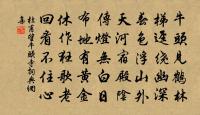 牛頭見鶴林
梯逕繞幽深
春色浮山外
天河宿殿陰
傳燈無白日
布地有黃金
休作狂歌老
回看不住心
杜甫望牛頭寺詞典網
集